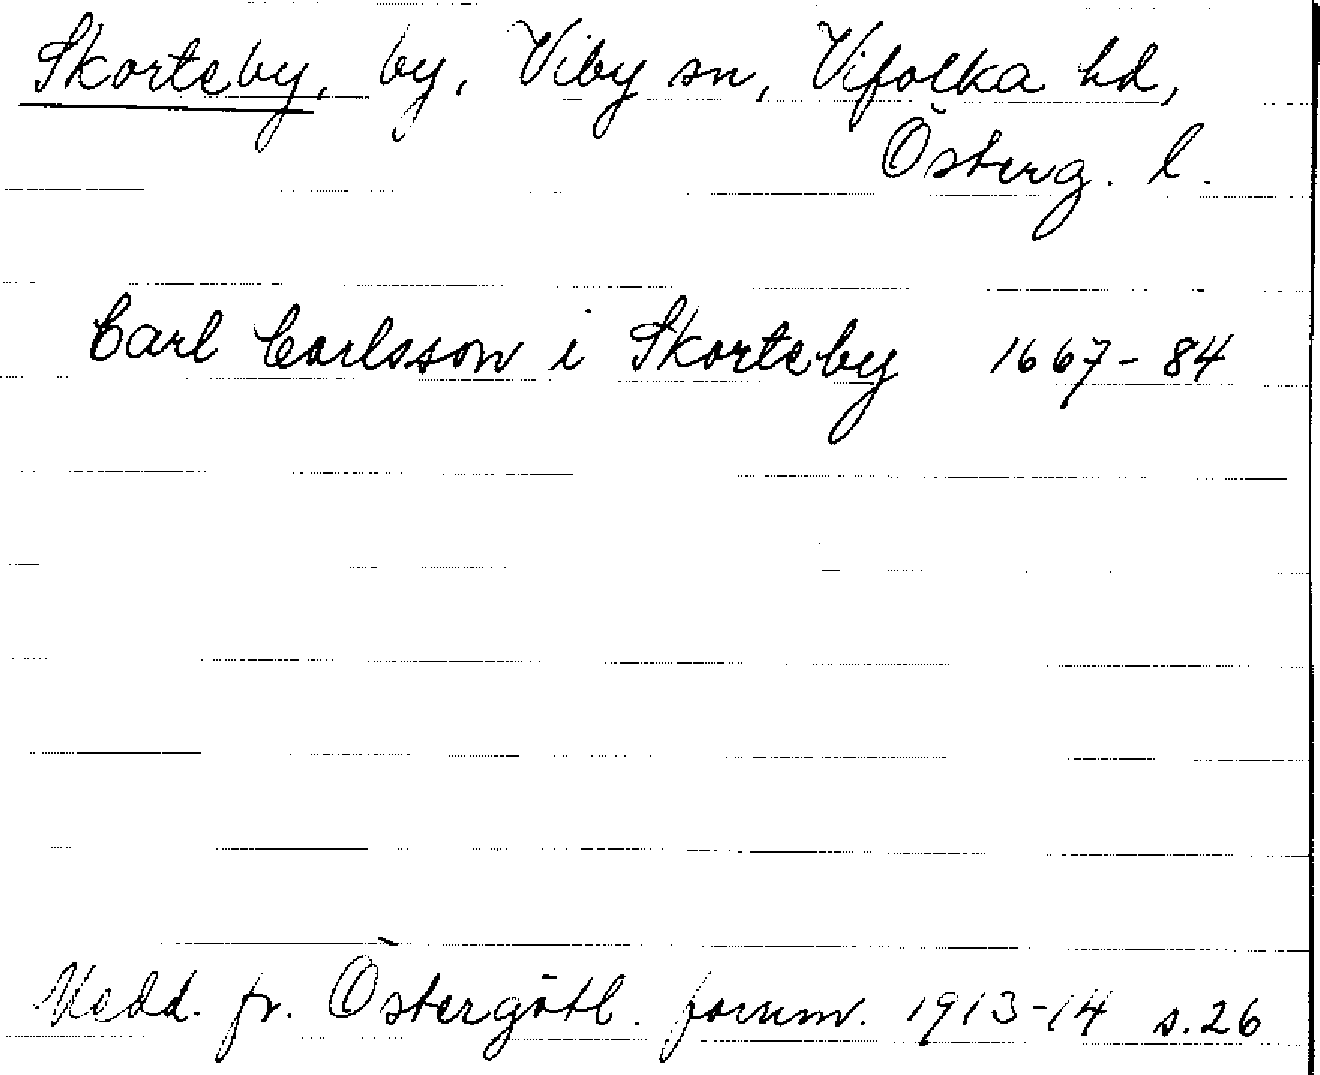 Skorteby, by, Viby sn, Vifolka hd,
Österg. l.
Carl Carlsson i Skorteby 1667-84
Medd. fr. Östergötl. fornm. 1913-14 s.26